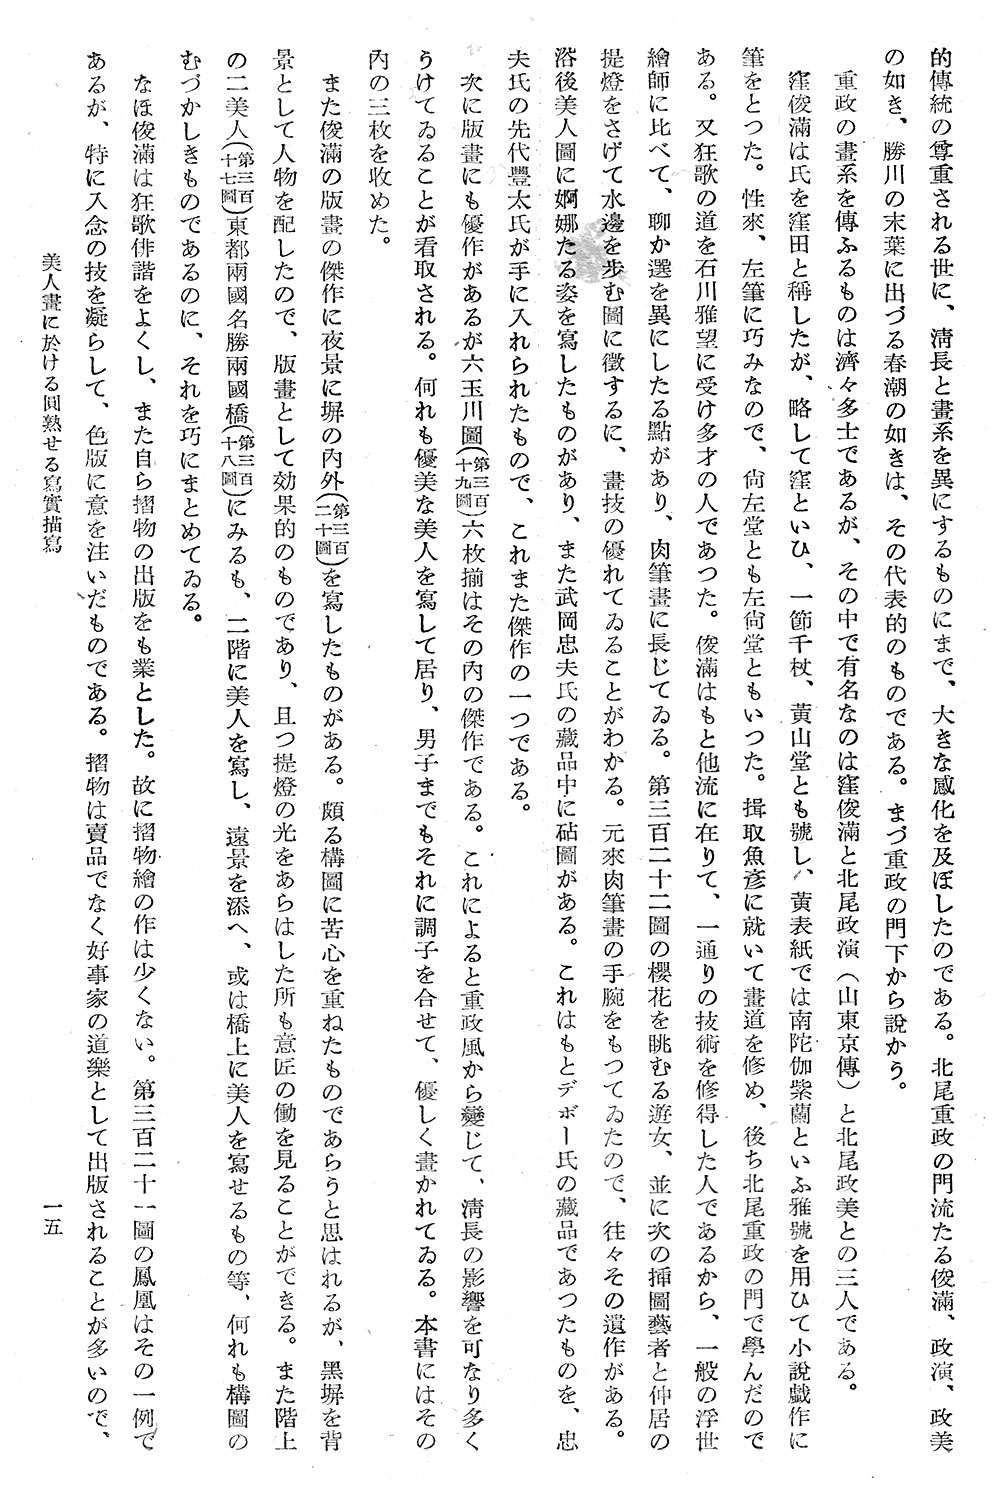 的傳統の尊重される世に、淸長と畫系を異にするものにまで、大きな感化を及ぼしたのである。北尾重政の門流たる俊滿、政演、政美
の如き、勝川の末葉に出づる春潮の如きは、その代表的のものである。まづ重政の門下から說かう。
重政の畫系を傳ふるものは濟々多士であるが、その中で有名なのは窪俊滿と北尾政演(山東京傳)と北尾政美との三人である。
窪俊滿は氏を窪田と稱したが、略して窪といひ、一節千杖、黃山堂とも號し、黃表紙では南陀伽紫蘭といふ雅號を用ひて小說戲作に
筆をとつた。性來、左筆に巧みなので、尙左堂とも左尙堂ともいつた。揖取魚彥に就いて畫道を修め、後ち北尾重政の門で學んだので
ある。又狂歌の道を石川雅望に受け多才の人であつた。俊滿はもと他流に在りて、一通りの技術を修得した人であるから、一般の浮世
繪師に比べて、聊か選を異にしたる點があり、肉筆畫に長じてゐる。第三百二十二圖の櫻花を眺むる遊女、並に次の揷圖藝者と仲居の
提燈をさげて水邊を步む圖に徵するに、畫技の優れてゐることがわかる。元來肉筆畫の手腕をもつてゐたので、往々その遺作がある。
浴後美人圖に婀娜たる姿を寫したものがあり、また武岡忠夫氏の藏品中に砧圖がある。これはもとデボー氏の藏品であつたものを、忠
夫氏の先代豐太氏が手に入れられたもので、これまた傑作の一つである。
次に版畫にも優作があるが六玉川圖(第三百十九圖)六枚揃はその內の傑作である。これによると重政風から變じて、淸長の影響を可なり多く
うけてゐることが看取される。何れも優美な美人を寫して居り、男子までもそれに調子を合せて、優しく畫かれてゐる。本書にはその
內の三枚を收めた。
また俊滿の版畫の傑作に夜景に塀の內外(第三百二十圖)を寫したものがある。頗る構圖に苦心を重ねたものであらうと思はれるが、黑塀を背
景として人物を配したので、版畫として効果的のものであり、且つ提燈の光をあらはした所も意匠の働を見ることができる。また階上
の二美人(第三百十七圖)東都兩國名勝兩國橋(第三百十八圖)にみるも、二階に美人を寫し、遠景を添へ、或は橋上に美人を寫せるもの等、何れも構圖の
むづかしきものであるのに、それを巧にまとめてゐる。
なほ俊滿は狂歌俳諧をよくし、また自ら摺物の出版をも業とした。故に摺物繪の作は少くない。第三百二十一圖の鳳凰はその一例で
あるが、特に入念の技を凝らして、色版に意を注いだものである。摺物は賣品でなく好事家の道樂として出版されることが多いので、
美人畫に於ける圓熟せる寫實描寫
一五